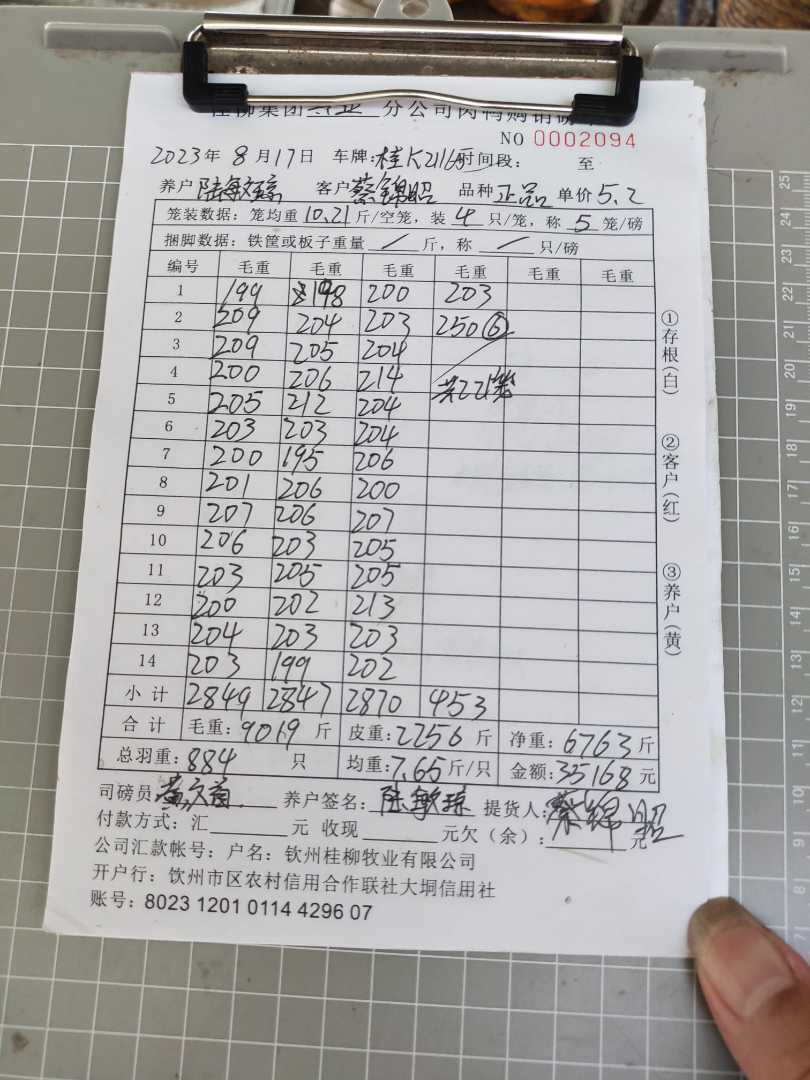 桂柳集团兴业分公司肉鸭购销磅单
NO 0002094
2023年8月17日 车牌:桂K2116 时间段: 至
养户 陆敏琼 客户 蔡锦昭 品种 正品 单价 5.2
笼装数据: 笼均重 10.21 斤/空笼, 装 4 只/笼, 称 5 笼/磅
捆脚数据: 铁筐或板子重量 / 斤, 称 / 只/磅
编号 毛重 毛重 毛重 毛重 毛重 毛重
1 199 198 200 203
2 209 204 203 250⑥
3 209 205 204
4 200 206 214 共221笼
5 205 212 204
6 203 203 204
7 200 195 206
8 201 206 200
9 207 206 207
10 206 203 205
11 203 205 205
12 200 202 213
13 204 203 203
14 203 199 202
小计 2849 2847 2870 453
合计 毛重: 9019 斤 皮重: 2256 斤 净重: 6763 斤
总羽重: 884 只 均重: 7.65 斤/只 金额: 35168 元
司磅员: 养户签名: 陆敏琼 提货人: 蔡锦昭
付款方式: 汇 元 收现 元欠(余): 元
公司汇款帐号: 户名: 钦州桂柳牧业有限公司
开户行: 钦州市区农村信用合作联社大垌信用社
账号: 8023 1201 0114 4296 07
①存根(白)
②客户(红)
③养户(黄)
25
24
23
22
21
20
19
18
17
16
15
14
13
12
11
10
9
8
7